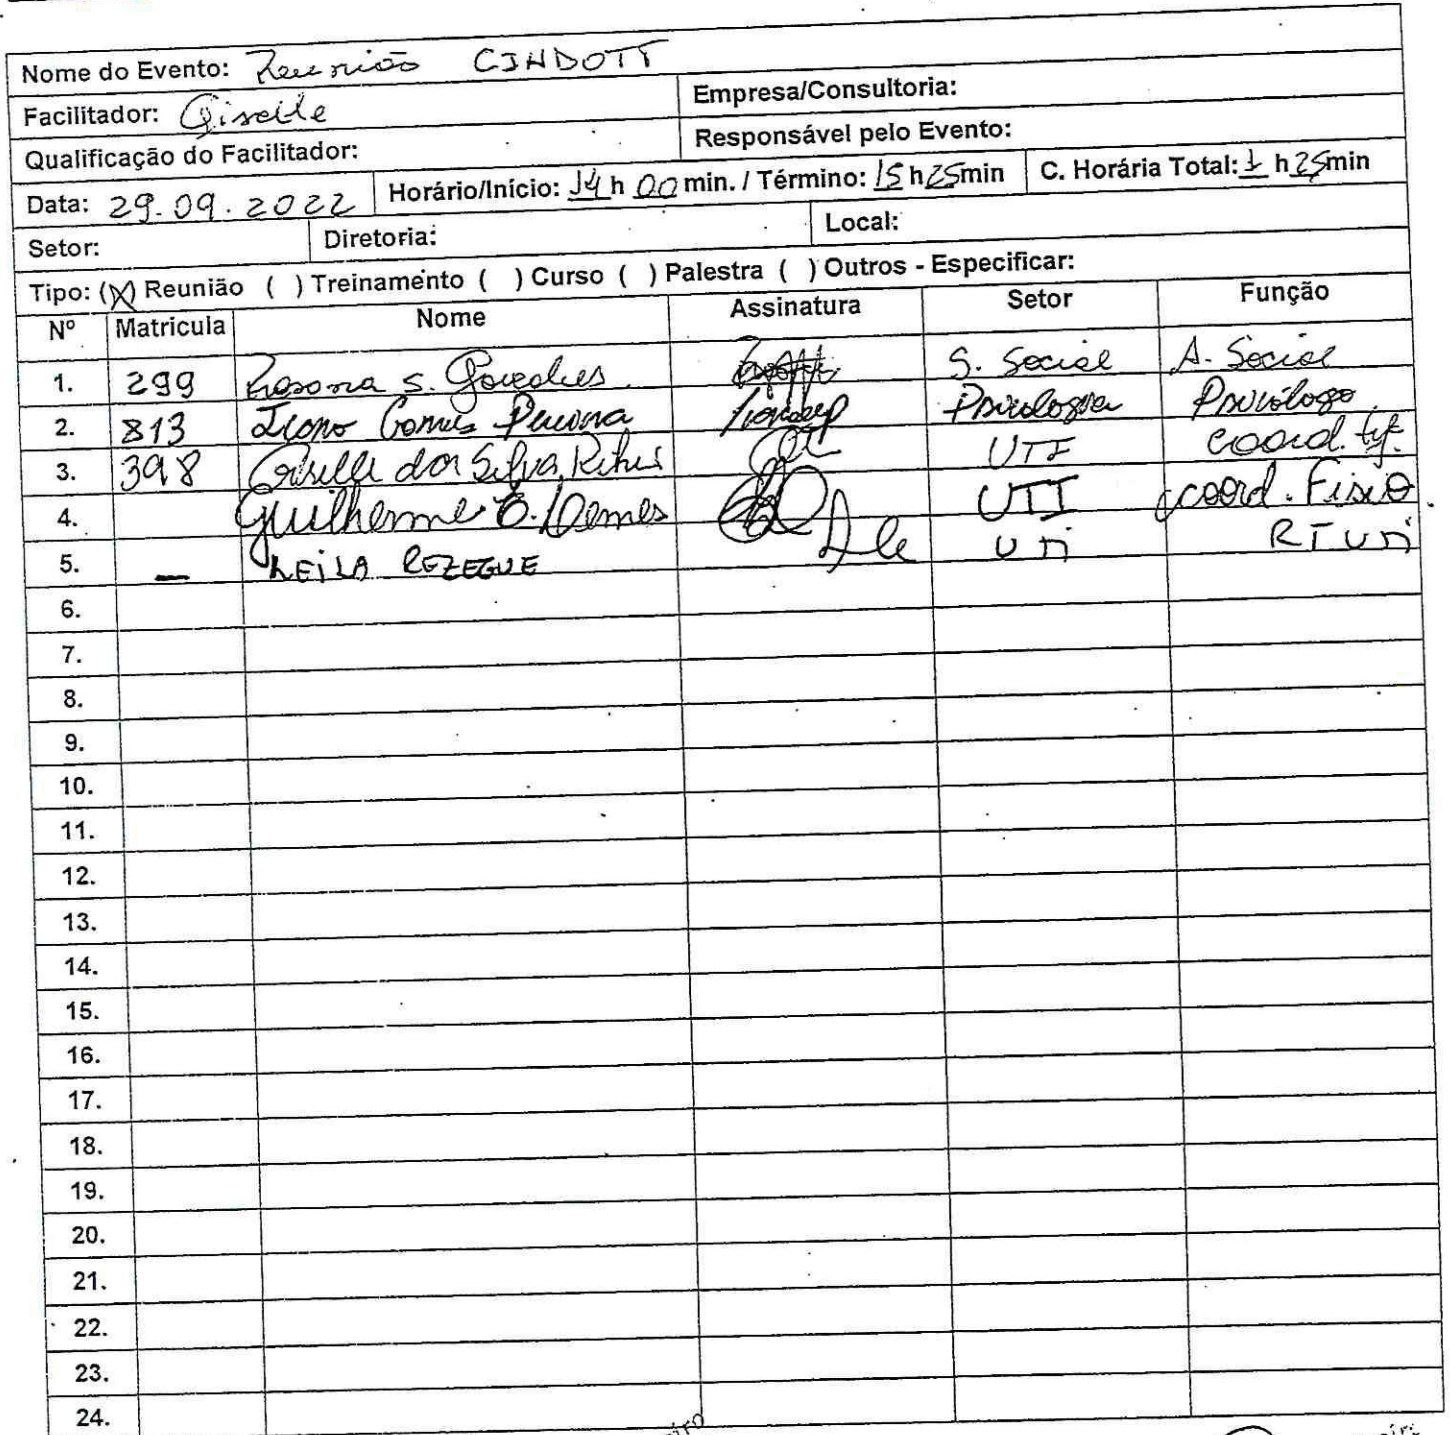 Nome do Evento: Reunião CIHDOTT
Facilitador: Giselle Empresa/Consultoria:
Qualificação do Facilitador: Responsável pelo Evento:
Data: 29.09.2022 Horário/Início: 14 h 00 min. / Término: 15 h 25 min C. Horária Total: 1 h 25 min
Setor: Diretoria: Local:
Tipo: (X) Reunião ( ) Treinamento ( ) Curso ( ) Palestra ( ) Outros - Especificar:
Nº Matricula Nome Assinatura Setor Função
1. 299 S. S. Social A. Social
2. 813 Gomes Psicologia Psicólogo
3. 398 Giselle da Silva UTI Coord.
4. Guilherme UTI Coord. Fisio
5. — LEILA REZEGUE UTI RT UTI
6.
7.
8.
9.
10.
11.
12.
13.
14.
15.
16.
17.
18.
19.
20.
21.
22.
23.
24.